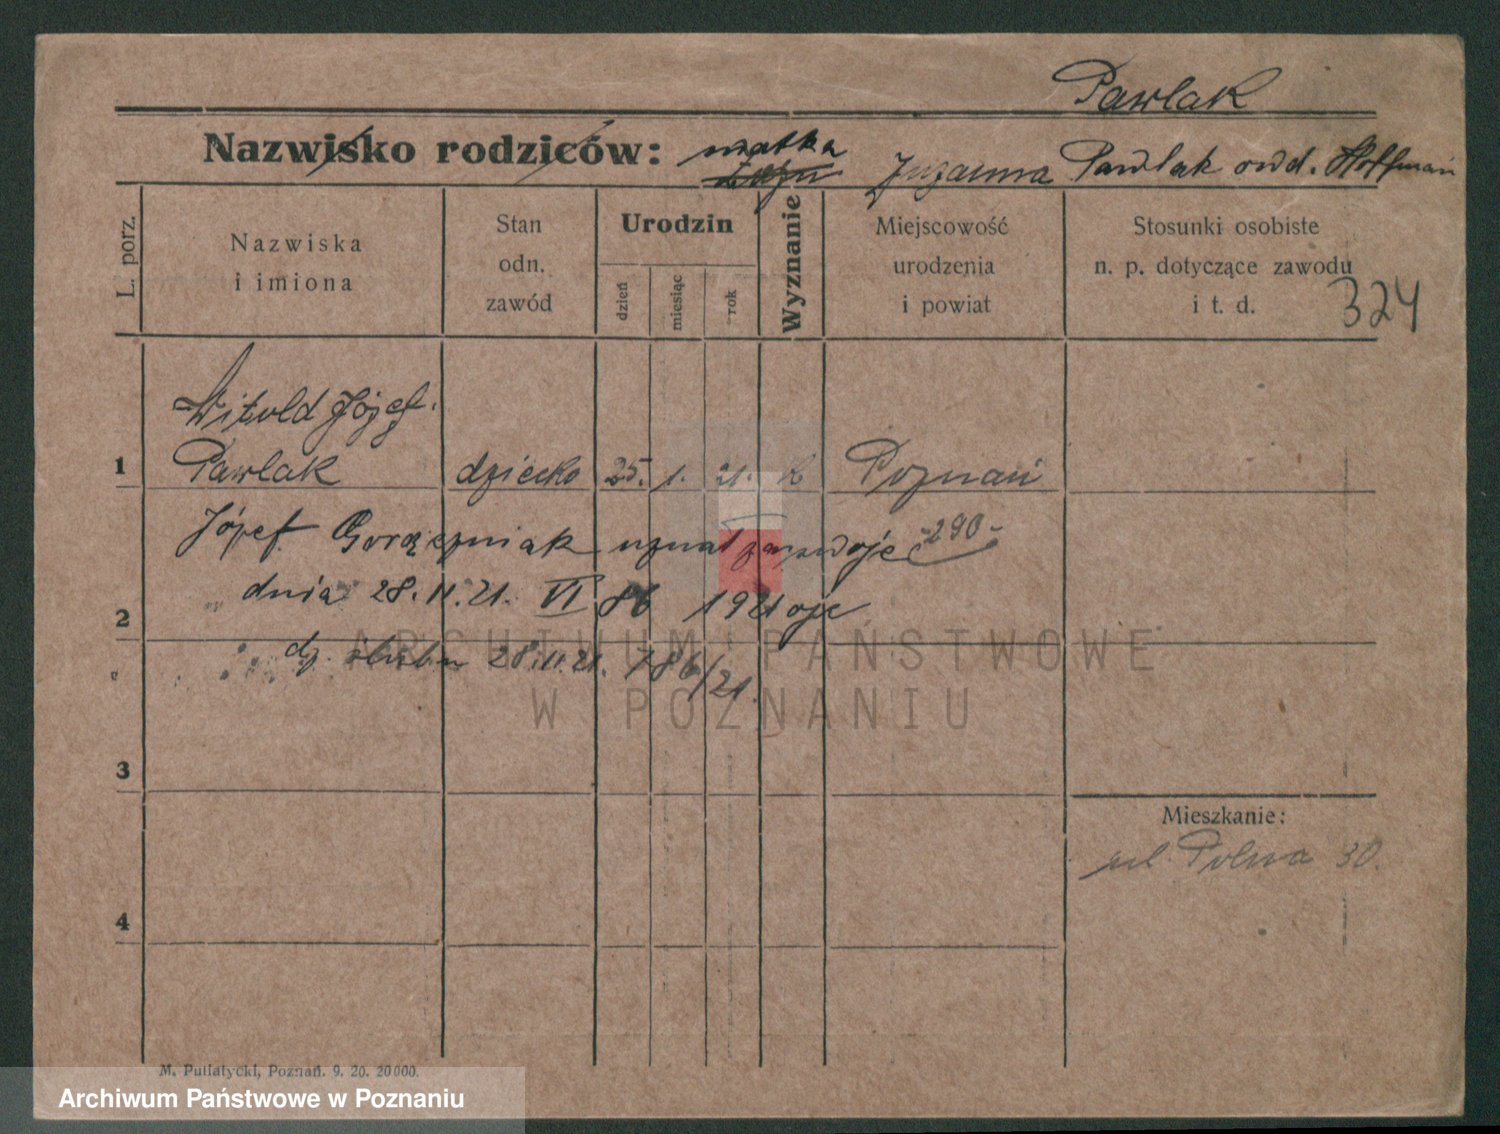 Pawlak
Nazwisko rodziców: matka Zuzanna Pawlak owd. Hoffman
L. porz.
Nazwiska
i imiona
Stan
odn.
zawód
Urodzin
dzień
miesiąc
rok
Wyznanie
Miejscowość
urodzenia
i powiat
Stosunki osobiste
n. p. dotyczące zawodu
i t. d.
324
Witold Józef
1 Pawlak dziecko 25. 1. 21. k Poznań
Józef Gorączniak uznał za swoje -290-
2 dnia 28.11.21. VI 86 1921
dz. ślubu 28.11.21. 86/21.
3
Mieszkanie:
ul. Polna 30.
4
M. Putiatycki, Poznań. 9. 20. 20000.
ARCHIWUM PAŃSTWOWE
W POZNANIU
Archiwum Państwowe w Poznaniu